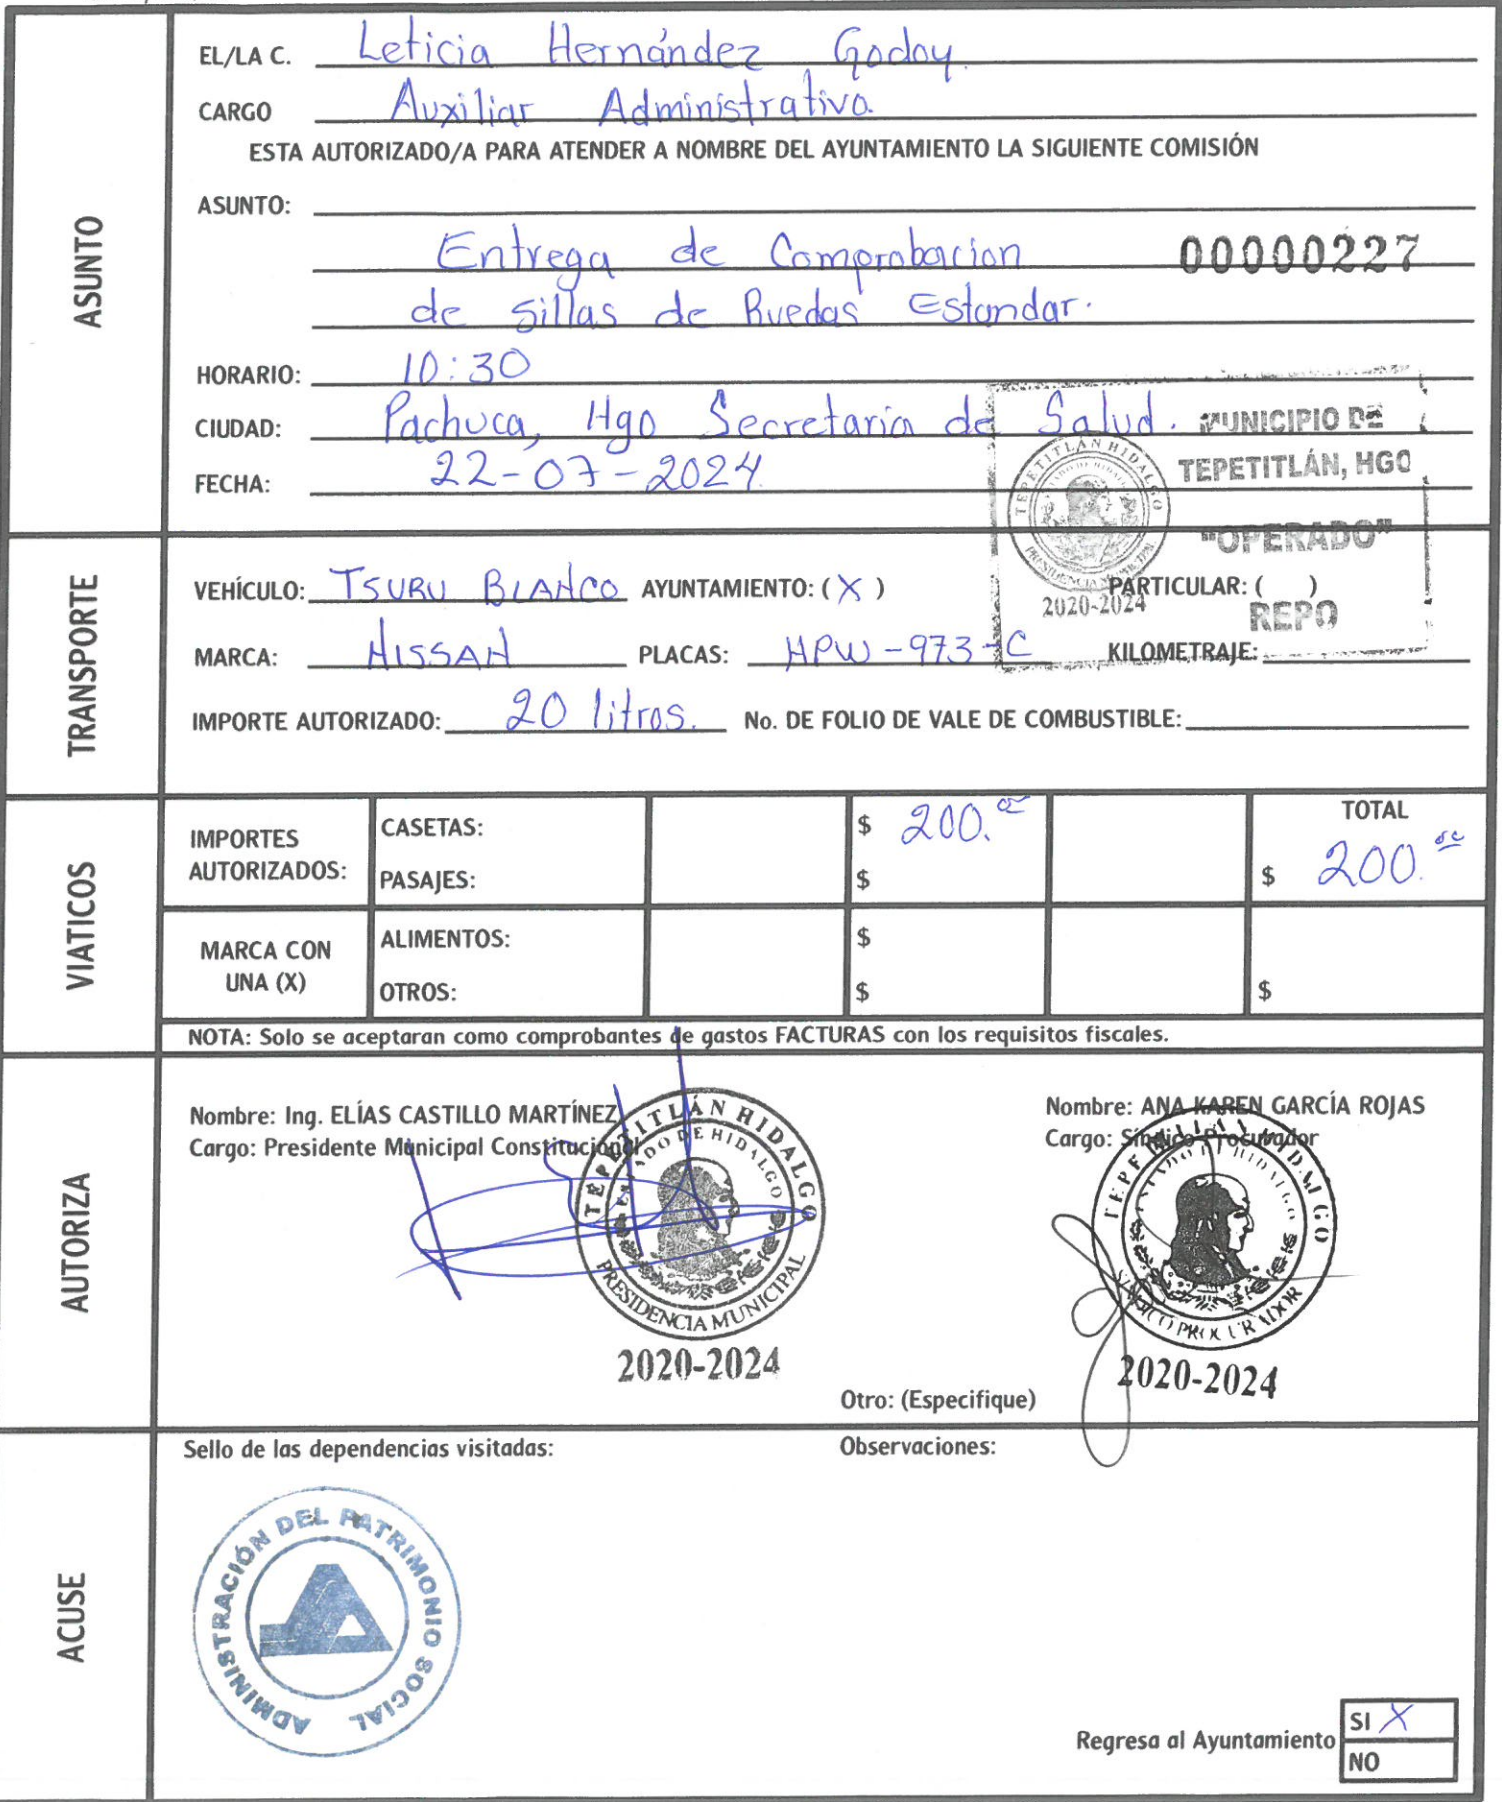 ASUNTO
EL/LA C. Leticia Hernández Godoy.
CARGO Auxiliar Administrativo.
ESTA AUTORIZADO/A PARA ATENDER A NOMBRE DEL AYUNTAMIENTO LA SIGUIENTE COMISIÓN
ASUNTO:
Entrega de Comprobacion 00000227
de Sillas de Ruedas Estandar.
HORARIO: 10:30
CIUDAD: Pachuca, Hgo Secretaria de Salud.
FECHA: 22-07-2024
MUNICIPIO DE
TEPETITLÁN, HGO
"OPERADO"
REPO
TEPETITLÁN HIDALGO
ESTADO DE HIDALGO
PRESIDENCIA MUNICIPAL
2020-2024
TRANSPORTE
VEHÍCULO: TSURU BLANCO AYUNTAMIENTO: (X) PARTICULAR: ( )
MARCA: NISSAN PLACAS: HPW-973-C KILOMETRAJE:
IMPORTE AUTORIZADO: 20 litros. No. DE FOLIO DE VALE DE COMBUSTIBLE:
VIATICOS
IMPORTES AUTORIZADOS:
CASETAS: $ 200.00
PASAJES: $
TOTAL
$ 200.00
MARCA CON UNA (X)
ALIMENTOS: $
OTROS: $ $
NOTA: Solo se aceptaran como comprobantes de gastos FACTURAS con los requisitos fiscales.
AUTORIZA
Nombre: Ing. ELÍAS CASTILLO MARTÍNEZ
Cargo: Presidente Municipal Constitucional
TEPETITLÁN HIDALGO
ESTADO DE HIDALGO
PRESIDENCIA MUNICIPAL
2020-2024
Nombre: ANA KAREN GARCÍA ROJAS
Cargo: Síndico Procurador
TEPETITLÁN HIDALGO
ESTADO DE HIDALGO
SINDICO PROCURADOR
2020-2024
Otro: (Especifique)
ACUSE
Sello de las dependencias visitadas:
Observaciones:
ADMINISTRACIÓN DEL PATRIMONIO SOCIAL
Regresa al Ayuntamiento
SI X
NO